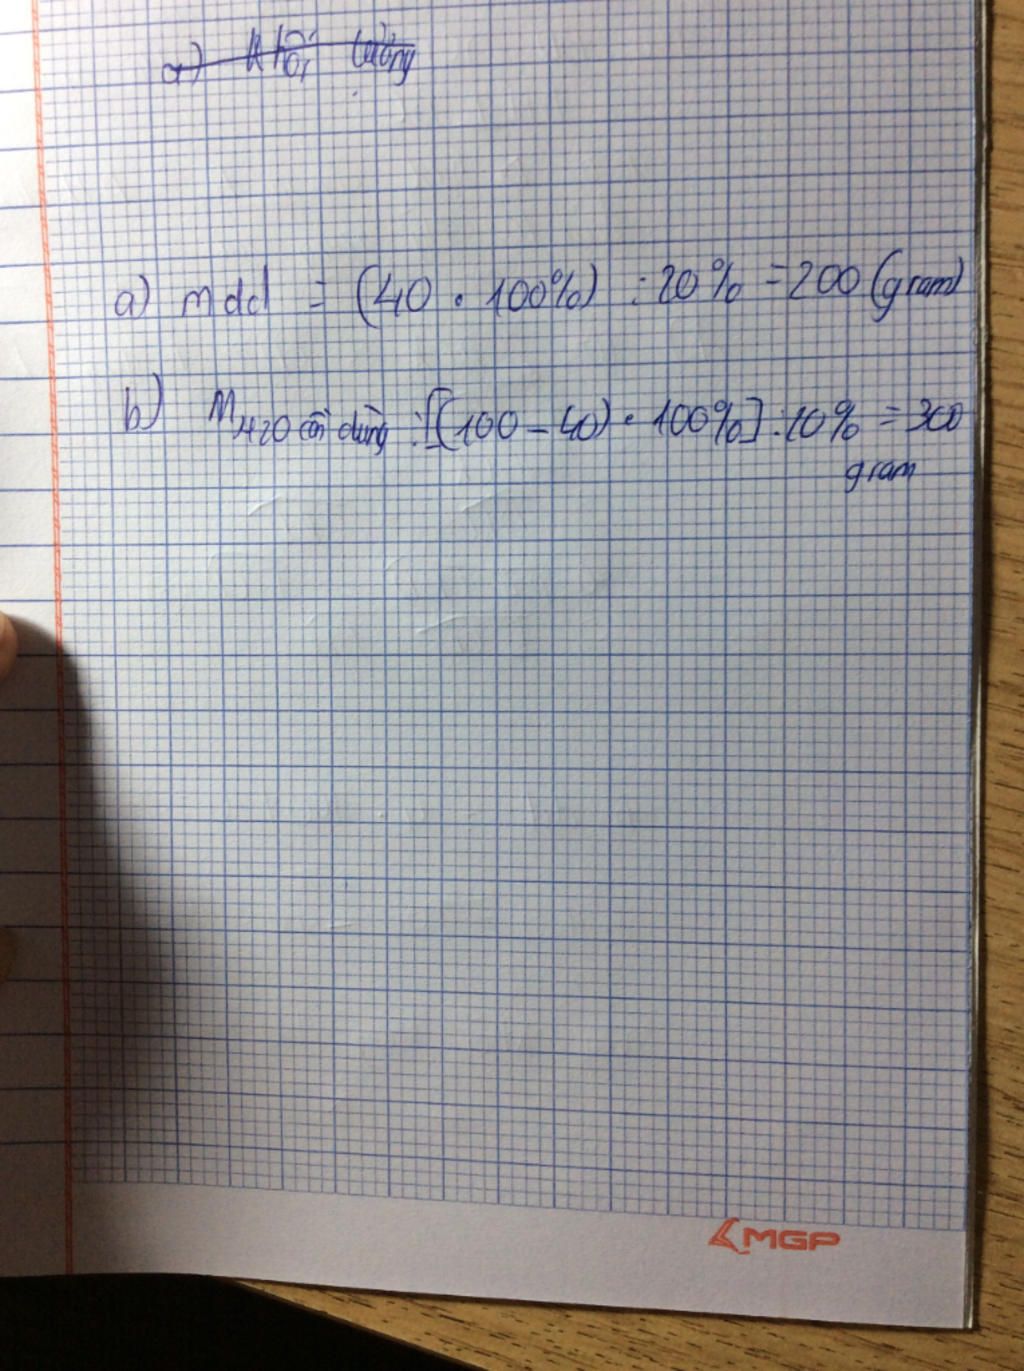 a) Khối lượng
a) mdd = (40 . 100%) : 20% = 200 (gram)
b) MH2O cần dùng : [(100 - 40) . 100%] : 10% = 300
gram
MGP